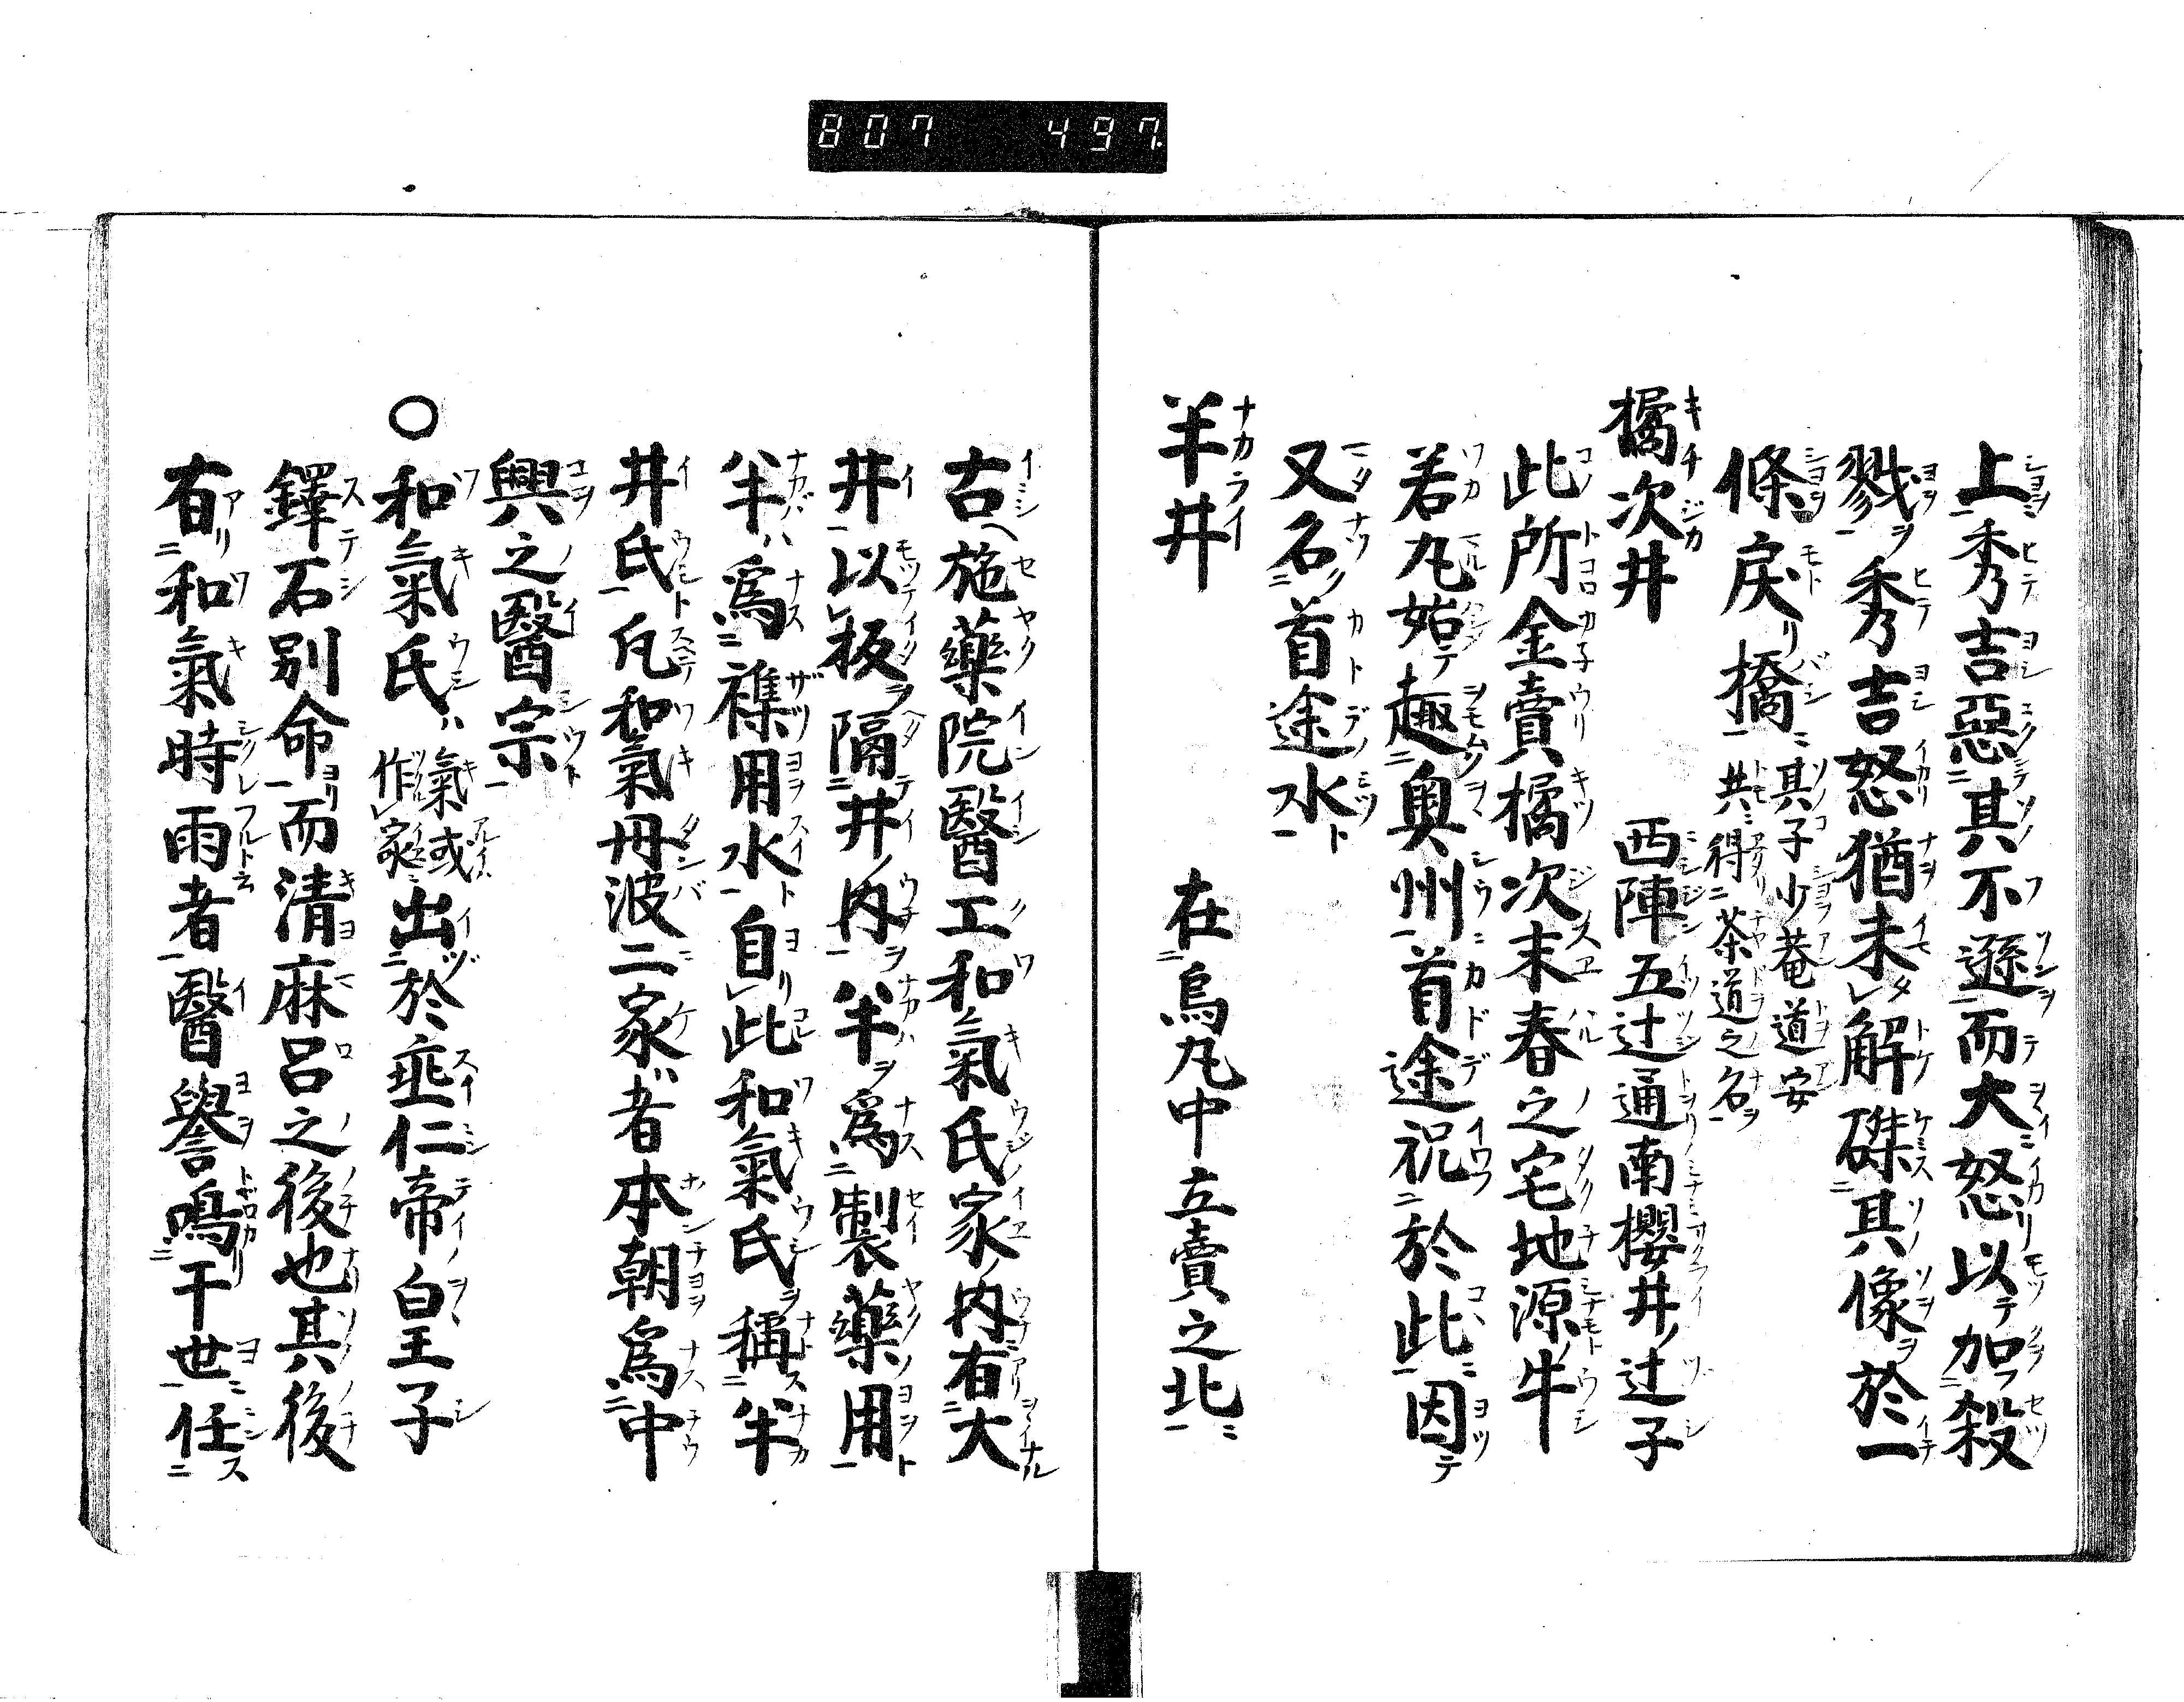 807 497
上秀吉惡其不遜而大怒以加殺
戮秀吉怒猶未解磔其像於一
條戻リ橋其子少菴道安共得茶道之名
橘次井 西陣五辻通南櫻井ノ辻子
此所金賣橘次末春之宅地源牛
若丸始テ趣奥州首途祝於此因テ
又名首途水
半井 在烏丸中立賣之北
古ヘ施藥院醫工和氣氏家内有大
井以板隔井ノ内半爲製藥用
半ハ爲襍用水自此和氣氏稱半
井氏凡和氣丹波二家者本朝爲中
興之醫宗
○和氣氏ハ氣或作家出於垂仁帝皇子
鐸石別命而清麻呂之後也其後
有和氣時雨者醫譽鳴于世任